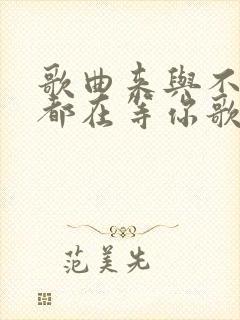 歌曲来與不
都在等你歌
范美先